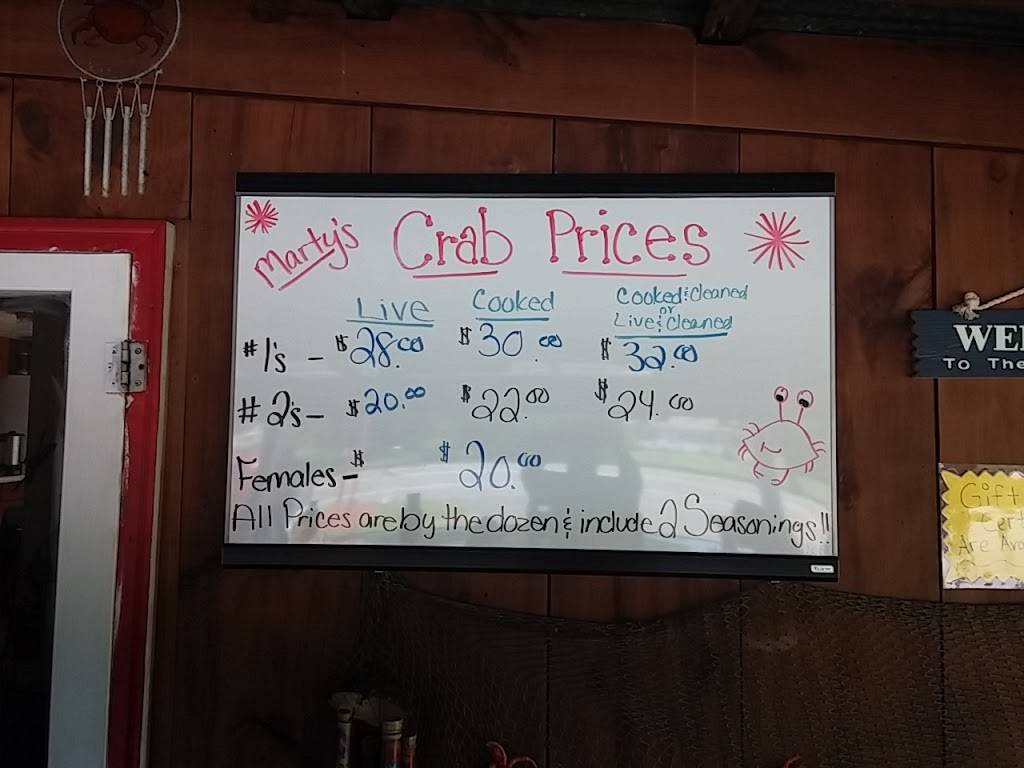 Marty's Crab Prices
Live Cooked Cooked & Cleaned
or
Live & Cleaned
#1's - $28.00 $30.00 $32.00
#2's - $20.00 $22.00 $24.00
Females - $ $20.00
All Prices are by the dozen & include 2 Seasonings!!
To The
Gift
Cert
Are